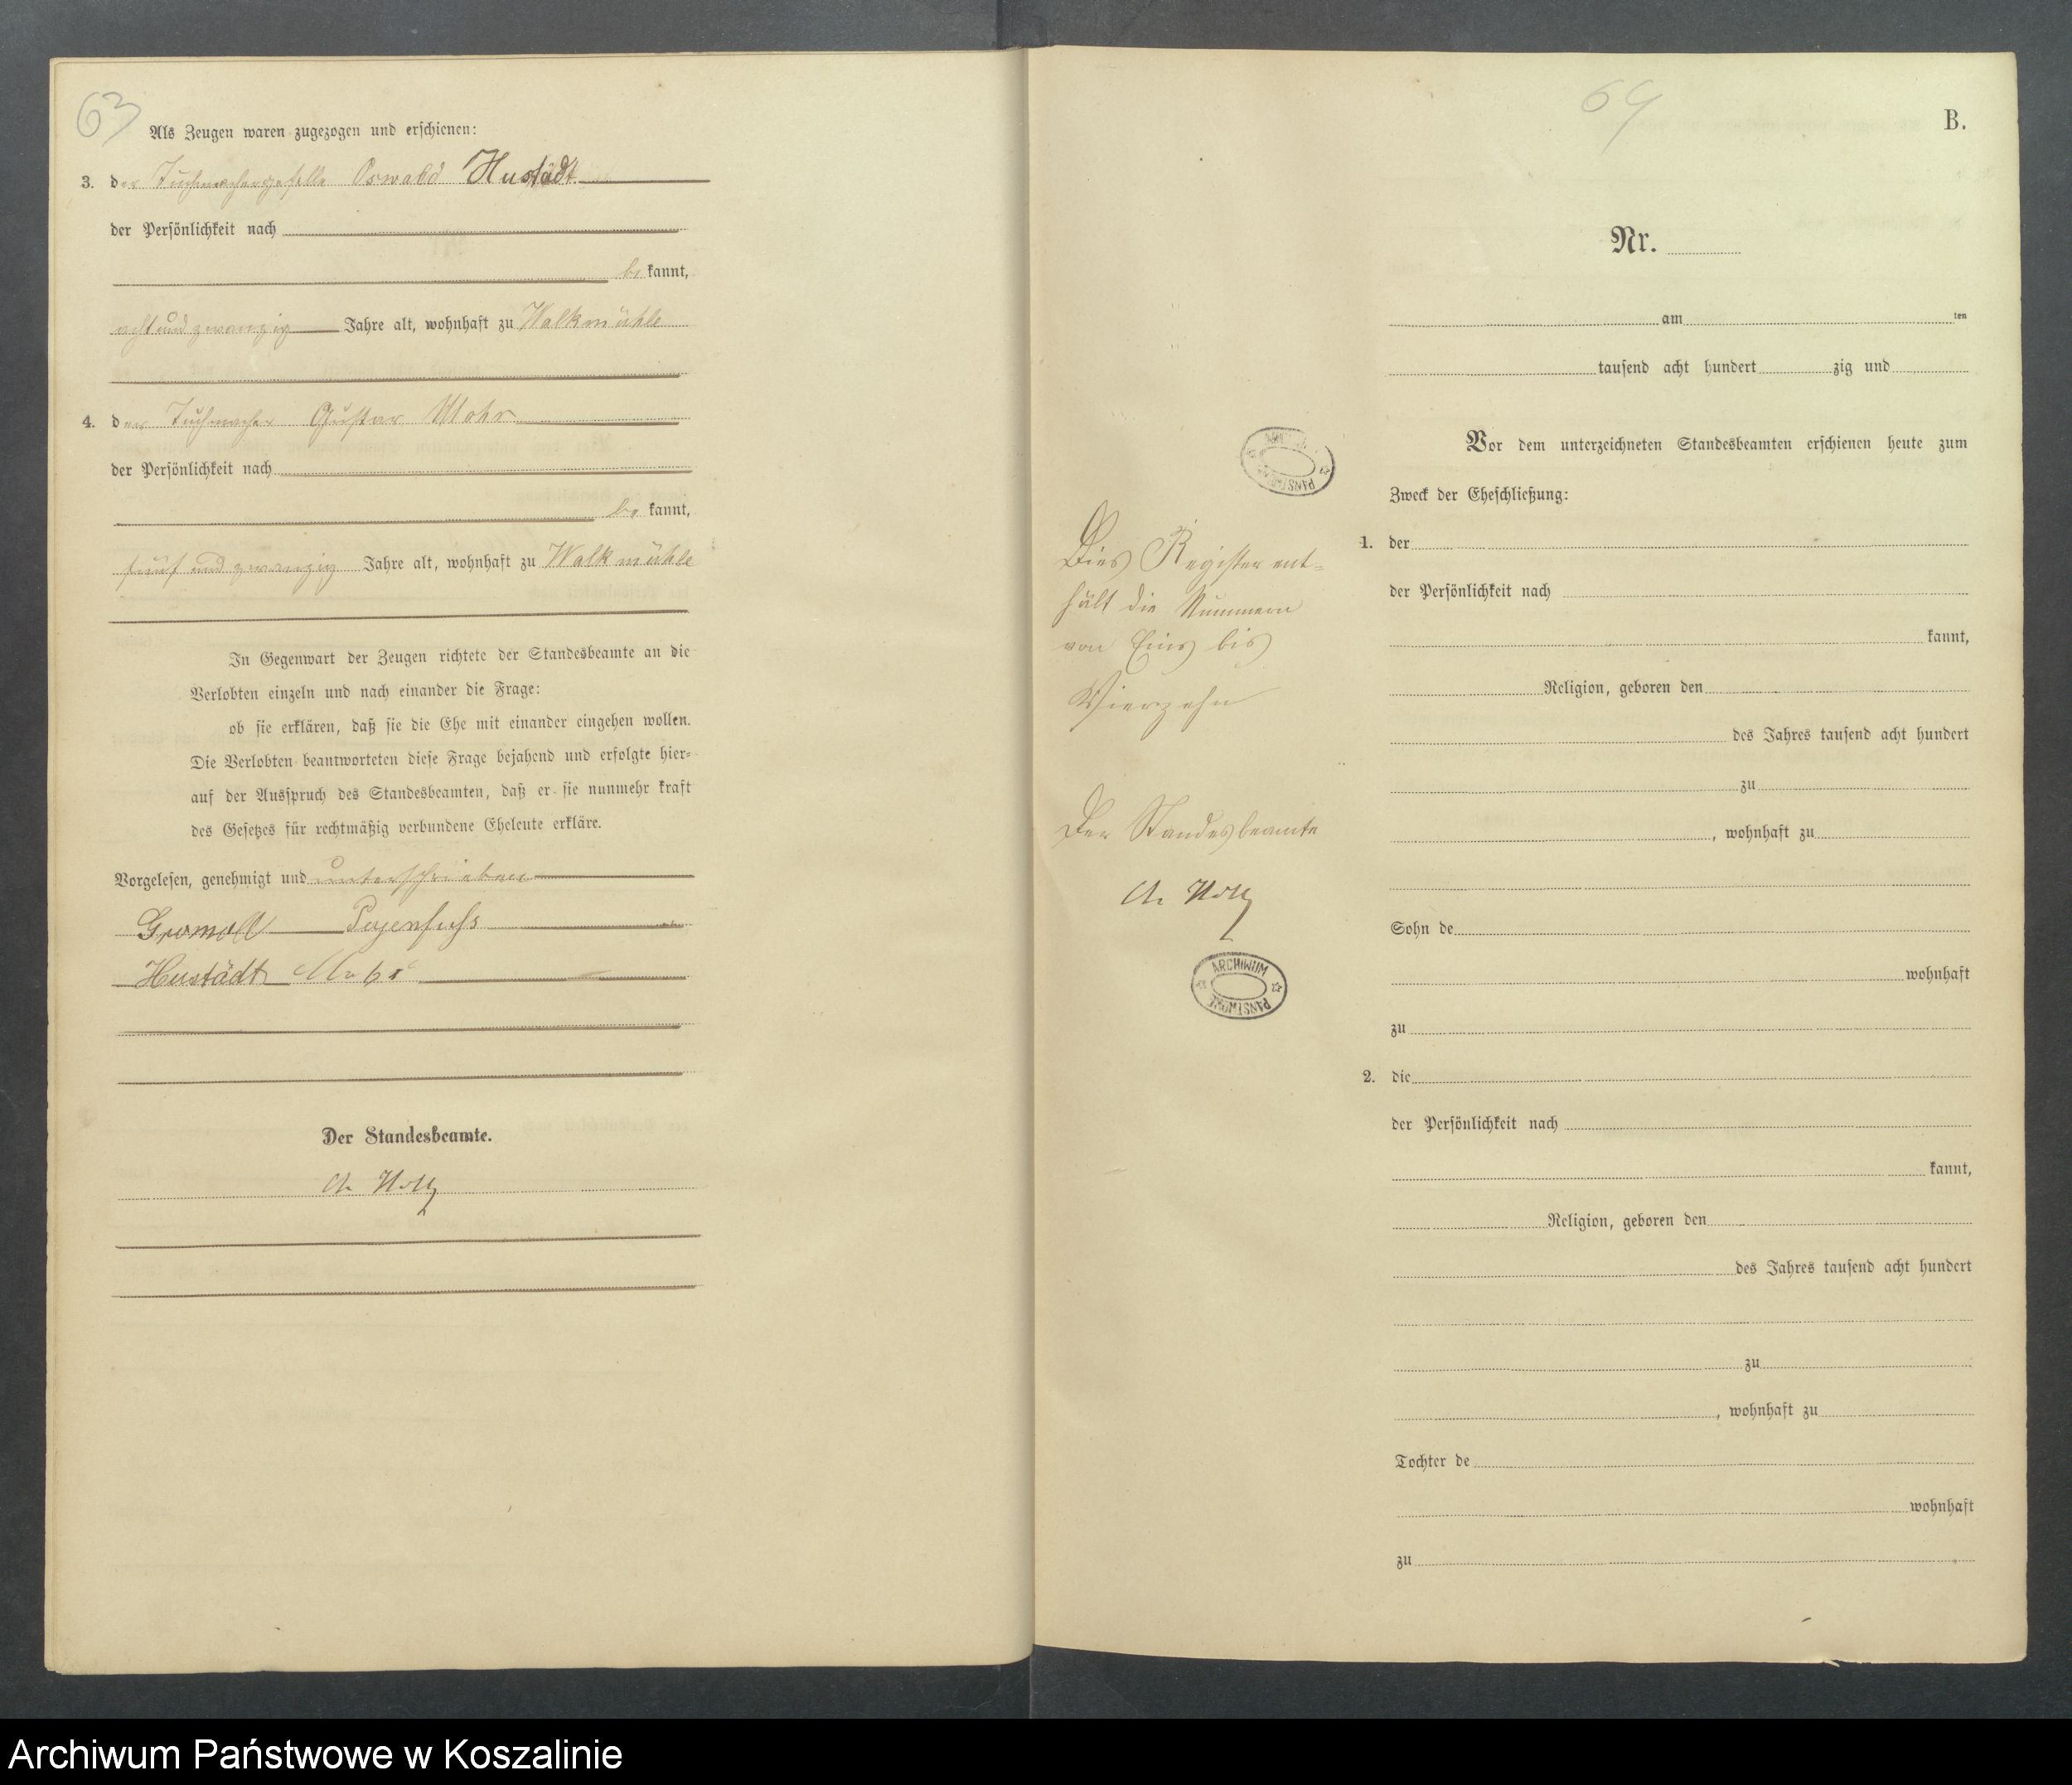 63
Als Zeugen waren zugezogen und erschienen:
3. der Tuchmachergeselle Oswald Hustädt
der Persönlichkeit nach
be kannt,
acht und zwanzig Jahre alt, wohnhaft zu Walkmühle
4. der Tuchmacher Gustav Mohr
der Persönlichkeit nach
be kannt,
fünf und zwanzig Jahre alt, wohnhaft zu Walkmühle
In Gegenwart der Zeugen richtete der Standesbeamte an die
Verlobten einzeln und nach einander die Frage:
ob sie erklären, daß sie die Ehe mit einander eingehen wollen.
Die Verlobten beantworteten diese Frage bejahend und erfolgte hier-
auf der Ausspruch des Standesbeamten, daß er sie nunmehr kraft
des Gesetzes für rechtmäßig verbundene Eheleute erkläre.
Vorgelesen, genehmigt und unterschrieben
Gromoll
Hustädt Mohr
Der Standesbeamte.
B.
Nr.
am ten
tausend acht hundert zig und
Vor dem unterzeichneten Standesbeamten erschienen heute zum
Zweck der Eheschließung:
1. der
der Persönlichkeit nach
kannt,
Religion, geboren den
des Jahres tausend acht hundert
zu
, wohnhaft zu
Sohn de
wohnhaft
zu
2. die
der Persönlichkeit nach
kannt,
Religion, geboren den
des Jahres tausend acht hundert
zu
, wohnhaft zu
Tochter de
wohnhaft
zu
Dies Register ent-
hält die Nummern
von Eins bis
Vierzehn
Der Standesbeamte
ARCHIWUM
PAŃSTWOWE
Archiwum Państwowe w Koszalinie